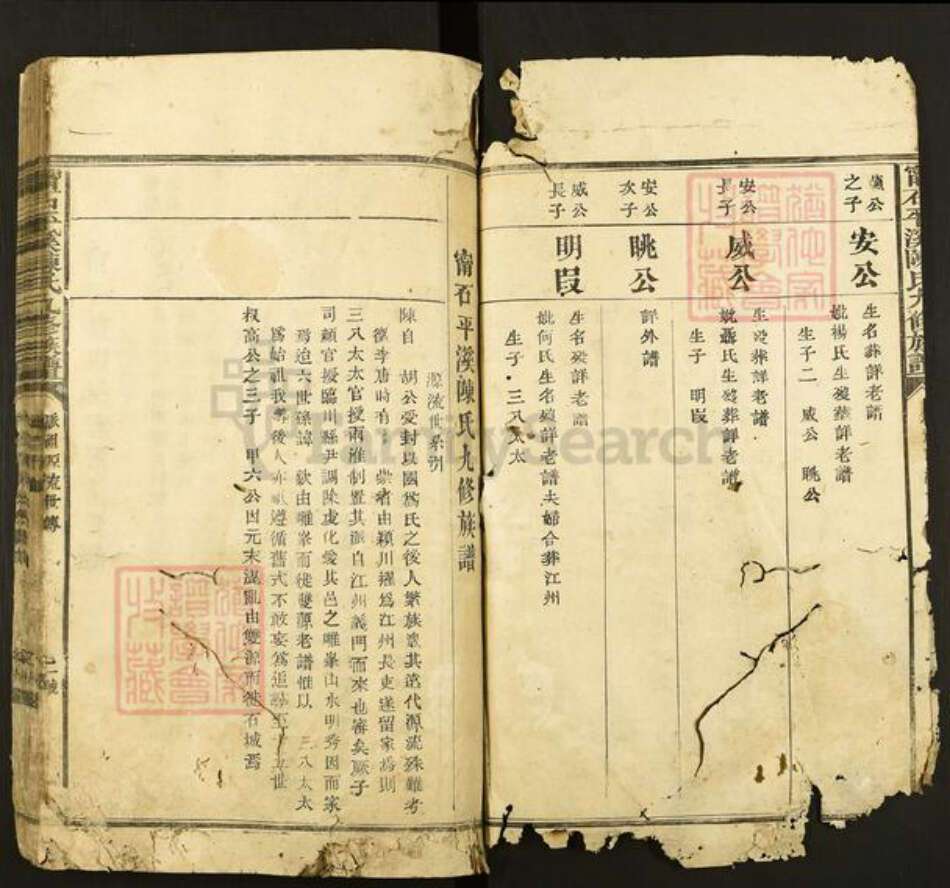 公之子
安公
生名葬詳老譜
妣楊氏生歿葬詳老譜
生子二 威公 晀公
安公長子
威公
生歿葬詳老譜
妣聶氏生歿葬詳老譜
生子 明㫟
安公次子
晀公
詳外譜
威公長子
明㫟
生名歿詳老譜
妣何氏生名歿詳老譜夫婦合葬江州
生子·三八太太
甯石平溪陳氏九修族譜
源流世系
陳自 胡公受封以國爲氏之後人繁族衆其歷代源流殊難考
徵李唐時有 崇者由潁川擢爲江州長吏遂留家焉則
三八太太官授兩淮制置其派自江州義門而來也審矣厥子
司顧官授臨川縣尹調陳虔化愛其邑之雕峯山水明秀因而家
焉迨六世孫諱 欽由雕峯而徙雙源老譜惟以 三八太太
爲始祖我等後人亦 遵循舊式不敢妄爲追 至十五世
叔高公之三子 甲六公因元末混亂由雙源而徙石城焉
派祖源流世傳
FamilySearch